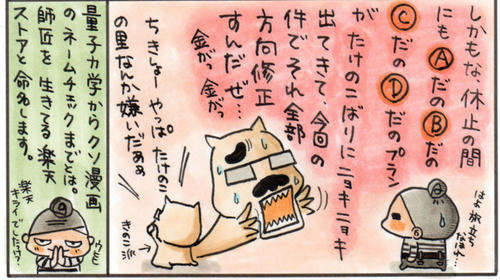 しかもな、休止の間
にもⒶだのⒷだの
ⒸだのⒹだのプラン
が たけのこばりにニョキニョキ
出てきて、今回の
件でそれ全部
方向修正
すんだぜ…
金が、
金がっ
ちきしょー やっぱ たけのこ
の里なんか嫌いだああ
きのこ派
はよ旅立ち
なはれ…
6
量子力学からクソ漫画
のネームチックまでとは。
師匠を 生きてる楽天
ストアと命名します。
楽天
キライでしたっけ?